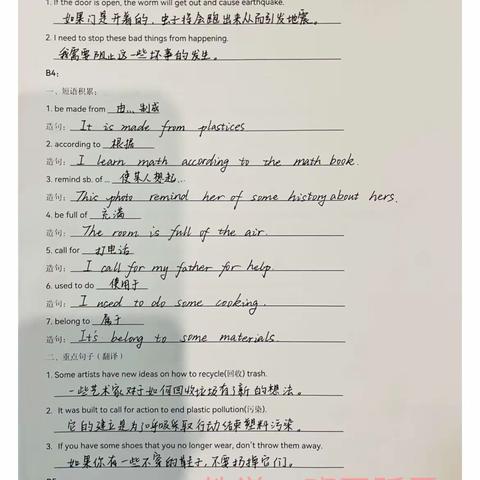 1. If the door is open, the worm will get out and cause earthquake.
如果门是开着的，虫子将会跑出来从而引发地震。
2. I need to stop these bad things from happening.
我需要阻止这一些坏事的发生。
B4:
一、短语积累：
1. be made from 由...制成
造句： It is made from plastices
2. according to 根据
造句： I learn math according to the math book.
3. remind sb. of ... 使某人想起...
造句： This photo remind her of some history about hers.
4. be full of 充满
造句： The room is full of the air.
5. call for 打电话
造句： I call for my father for help.
6. used to do 使用于
造句： I used to do some cooking.
7. belong to 属于
造句： It's belong to some materials.
二、重点句子（翻译）
1. Some artists have new ideas on how to recycle(回收) trash.
一些艺术家对于如何回收垃圾有了新的想法。
2. It was built to call for action to end plastic pollution(污染).
它的建立是为了呼吁采取行动结束塑料污染。
3. If you have some shoes that you no longer wear, don't throw them away.
如果你有一些不穿的鞋子，不要扔掉它们。